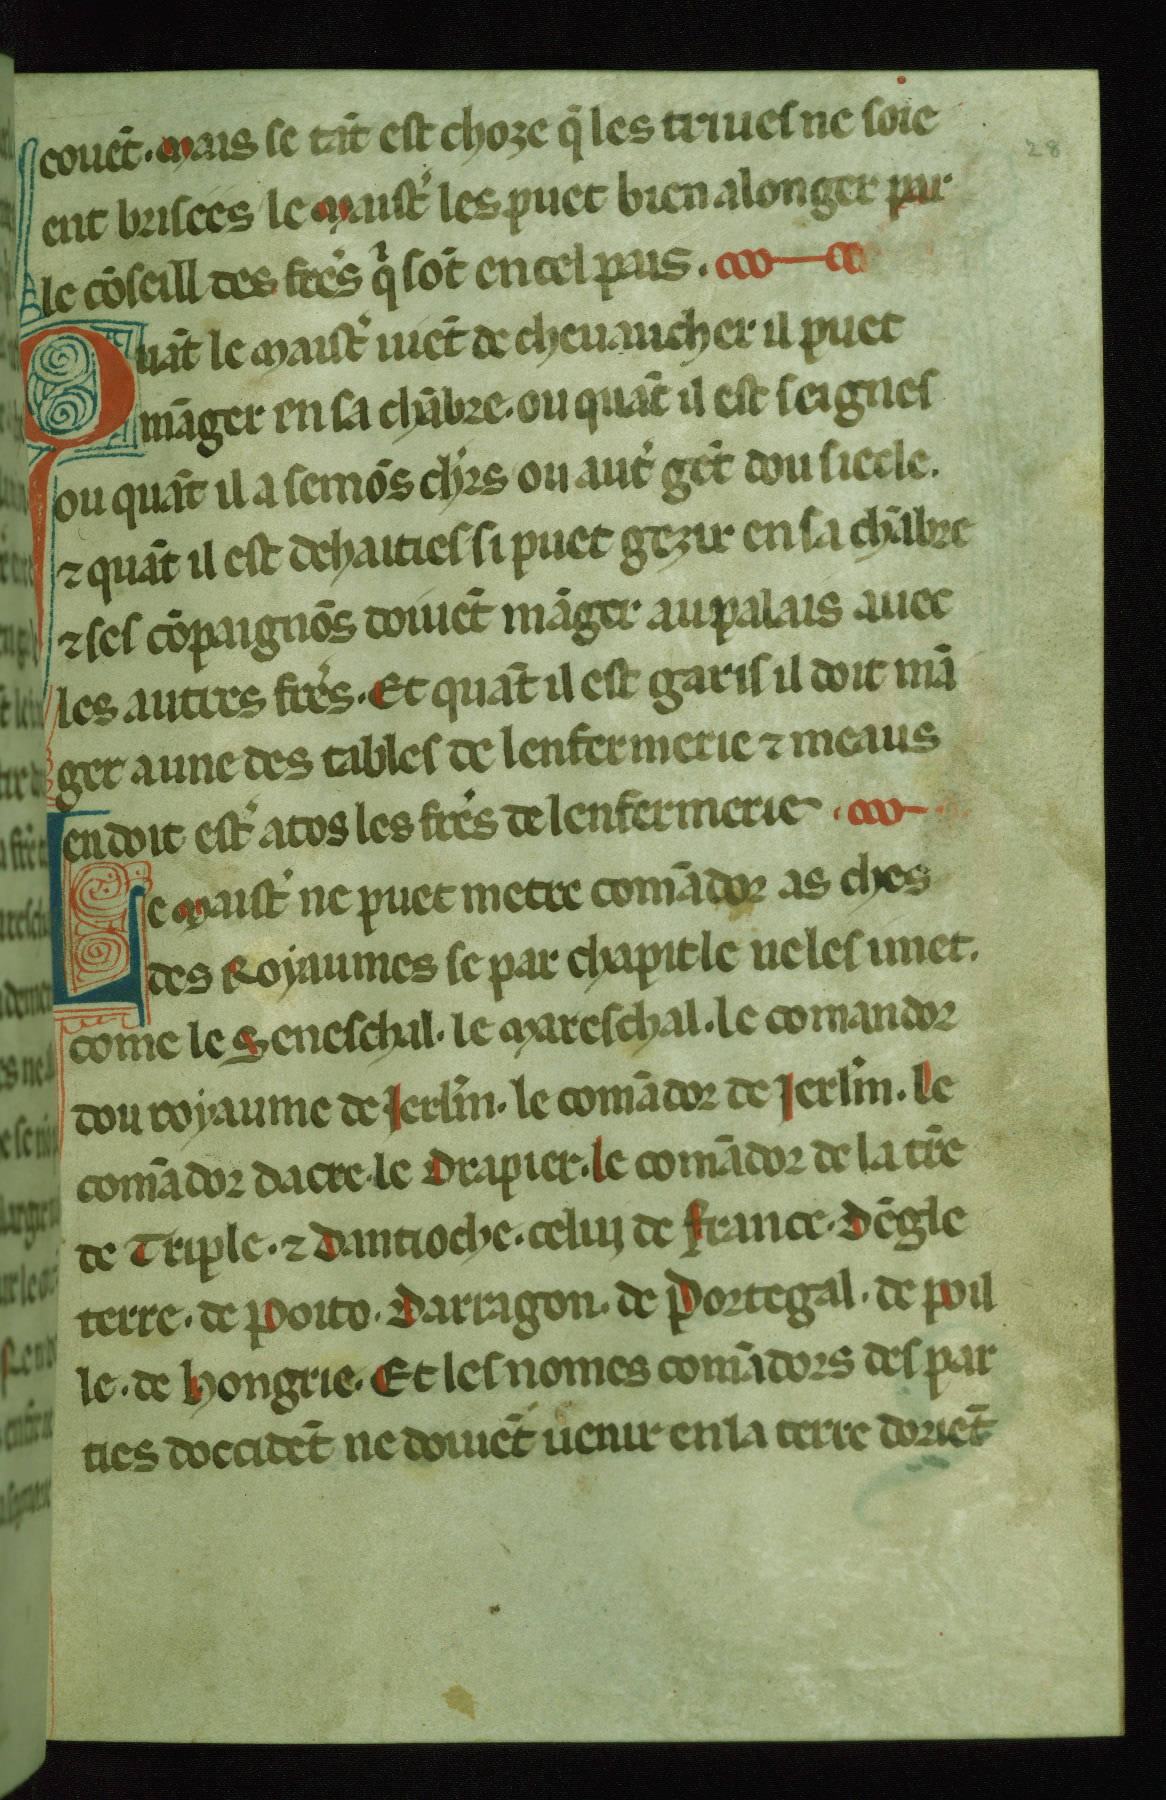 28
couēt. mais se tāt est choze q̄ les triues ne soie
ent brisees le maist̓ les puet bien alonger par
le cōseill des frēs q̓ sōt en cel pais.
Quāt le maist̓ uiēt de cheuaucher il puet
māger en sa chābre. ou quāt il est seignes
ou quāt il a semōs ch̄rs ou aut̓ gēt dou siecle.
⁊ quāt il est dehaities si puet gezir en sa chābre
⁊ ses cōpaignōs doiuēt māger au palais auec
les autres frēs. Et quāt il est garis il doit mā
ger a une des tables de lenfermerie ⁊ meaus
en doit est̓ a tos les frēs de lenfermerie.
Le maist̓ ne puet metre comādor as ches
des Royaumes se par chapitle ne les i met.
come le Seneschal. le mareschal. le comandor
dou royaume de Jerlm̄. le comādor de Jerlm̄. le
comādor dacre. le Drapier. le comādor de la tr̄e
de Triple. ⁊ Dantioche. celuy de france. Dēgle
terre. de poito. Darragon. de Portegal. de poil
le. de hongrie. Et les nomes comādors des par
ties doccidēt ne doiuēt uenir en la terre doriēt